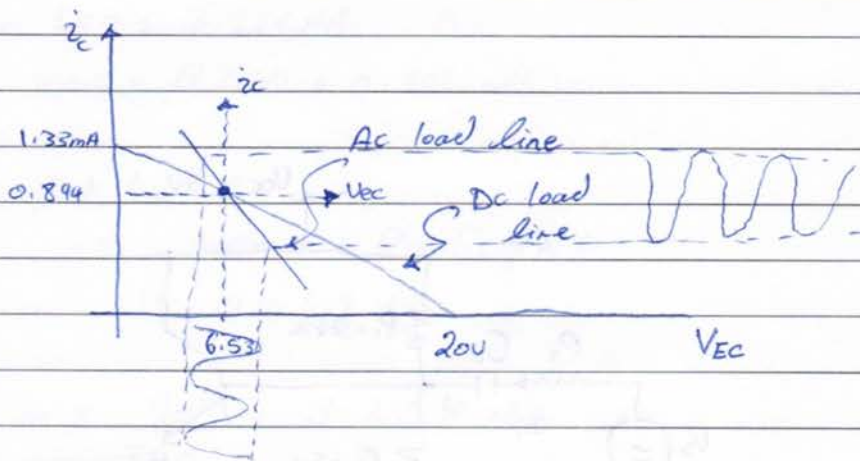 i_c
ic
1.33mA
Ac load line
0.894
Vec
Dc load
line
6.53
20V
V_EC